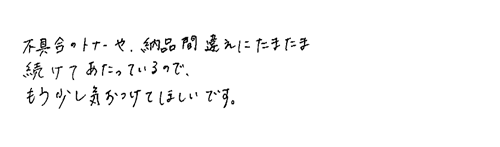 不具合のトナーや、納品間違えにたまたま
続けてあたっているので、
もう少し気おつけてほしいです。